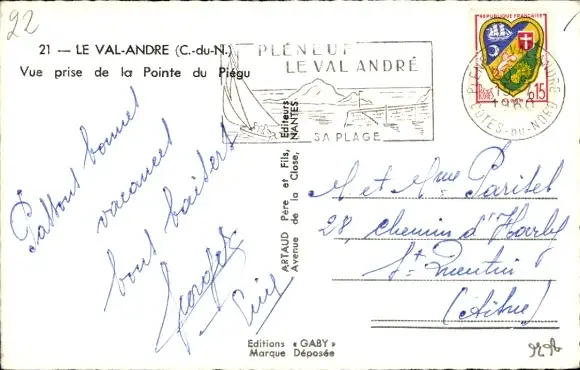 22
21 — LE VAL-ANDRE (C.-du-N.)
Vue prise de la Pointe du Piégu
PLÉNEUF
LE VAL ANDRÉ
SA PLAGE
REPUBLIQUE FRANÇAISE
POSTES
0,15
PLÉNEUF VAL ANDRÉ
CÔTES-DU-NORD
Passons bonnes
vacances
bons baisers
ARTAUD Père et Fils, Editeurs
Avenue de la Close, NANTES
M et Mme Parisel
28, chemin d'Harly
St Quentin
(Aisne)
Editions « GABY »
Marque Déposée